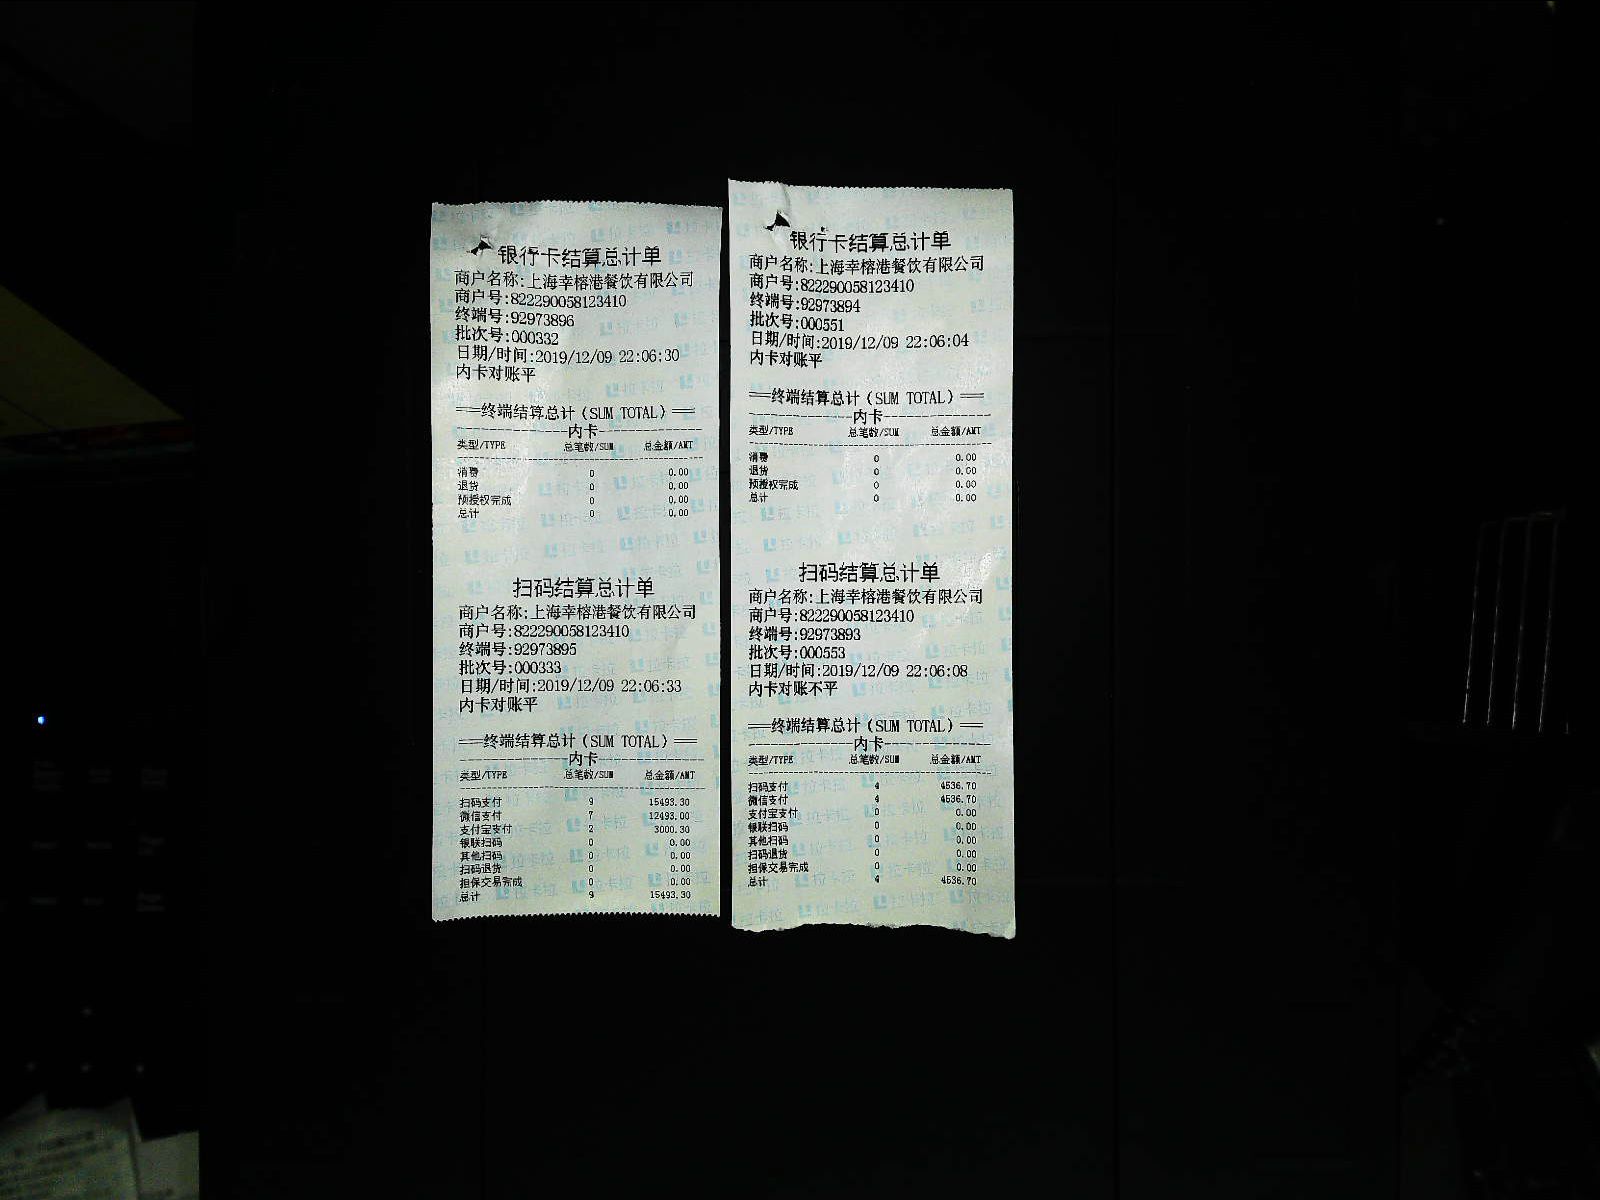 银行卡结算总计单
商户名称:上海幸榕港餐饮有限公司
商户号:822290058123410
终端号:92973896
批次号:000332
日期/时间:2019/12/09 22:06:30
内卡对账平
═══终端结算总计(SUM TOTAL)═══
内卡
类型/TYPE 总笔数/SUM 总金额/AMT
消费 0 0.00
退货 0 0.00
预授权完成 0 0.00
总计 0 0.00
扫码结算总计单
商户名称:上海幸榕港餐饮有限公司
商户号:822290058123410
终端号:92973895
批次号:000333
日期/时间:2019/12/09 22:06:33
内卡对账平
═══终端结算总计(SUM TOTAL)═══
内卡
类型/TYPE 总笔数/SUM 总金额/AMT
扫码支付 9 15493.30
微信支付 7 12493.00
支付宝支付 2 3000.30
银联扫码 0 0.00
其他扫码 0 0.00
扫码退货 0 0.00
担保交易完成 0 0.00
总计 9 15493.30
银行卡结算总计单
商户名称:上海幸榕港餐饮有限公司
商户号:822290058123410
终端号:92973894
批次号:000551
日期/时间:2019/12/09 22:06:04
内卡对账平
═══终端结算总计(SUM TOTAL)═══
内卡
类型/TYPE 总笔数/SUM 总金额/AMT
消费 0 0.00
退货 0 0.00
预授权完成 0 0.00
总计 0 0.00
扫码结算总计单
商户名称:上海幸榕港餐饮有限公司
商户号:822290058123410
终端号:92973893
批次号:000553
日期/时间:2019/12/09 22:06:08
内卡对账不平
═══终端结算总计(SUM TOTAL)═══
内卡
类型/TYPE 总笔数/SUM 总金额/AMT
扫码支付 4 4536.70
微信支付 4 4536.70
支付宝支付 0 0.00
银联扫码 0 0.00
其他扫码 0 0.00
扫码退货 0 0.00
担保交易完成 0 0.00
总计 4 4536.70